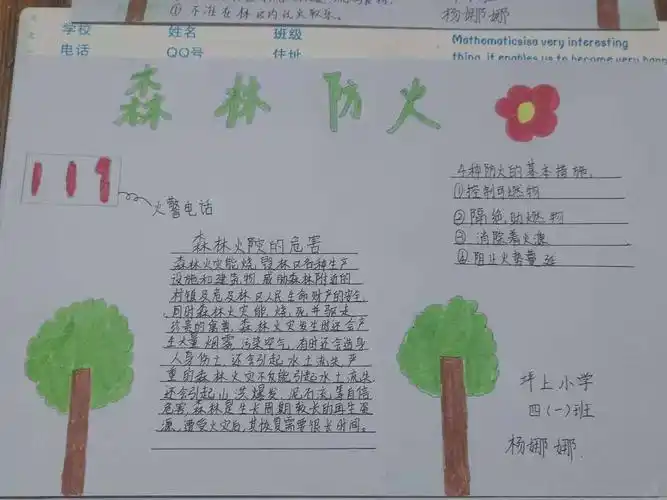 ① 不准在林区内玩火取乐。
杨娜娜
学校 姓名 班级
电话 QQ号 住址
Mathematics is a very interesting
thing, it enables us to become very happy
森林防火
119
火警电话
森林火险的危害
森林火灾能烧毁林区各种生产
设施和建筑物,威胁森林附近的
村镇及危及林区人民生命财产的安全,
同时森林火灾能烧死并驱走
珍贵的禽兽,森林火灾发生时还会产
生大量烟雾,污染空气,有时还会造身
人身伤亡,还会引起水土流失,严
重的森林火灾不仅能引起水土流失
还会引起山洪爆发、泥石流等自信
危害,森林是生长周期较长的再生资
源,遭受火灾后,其恢复需要很长时间。
4种防火的基本措施.
①控制可燃物
②隔绝助燃物
③消除着火源
④阻止火势蔓延
坪上小学
四(一)班
杨娜娜